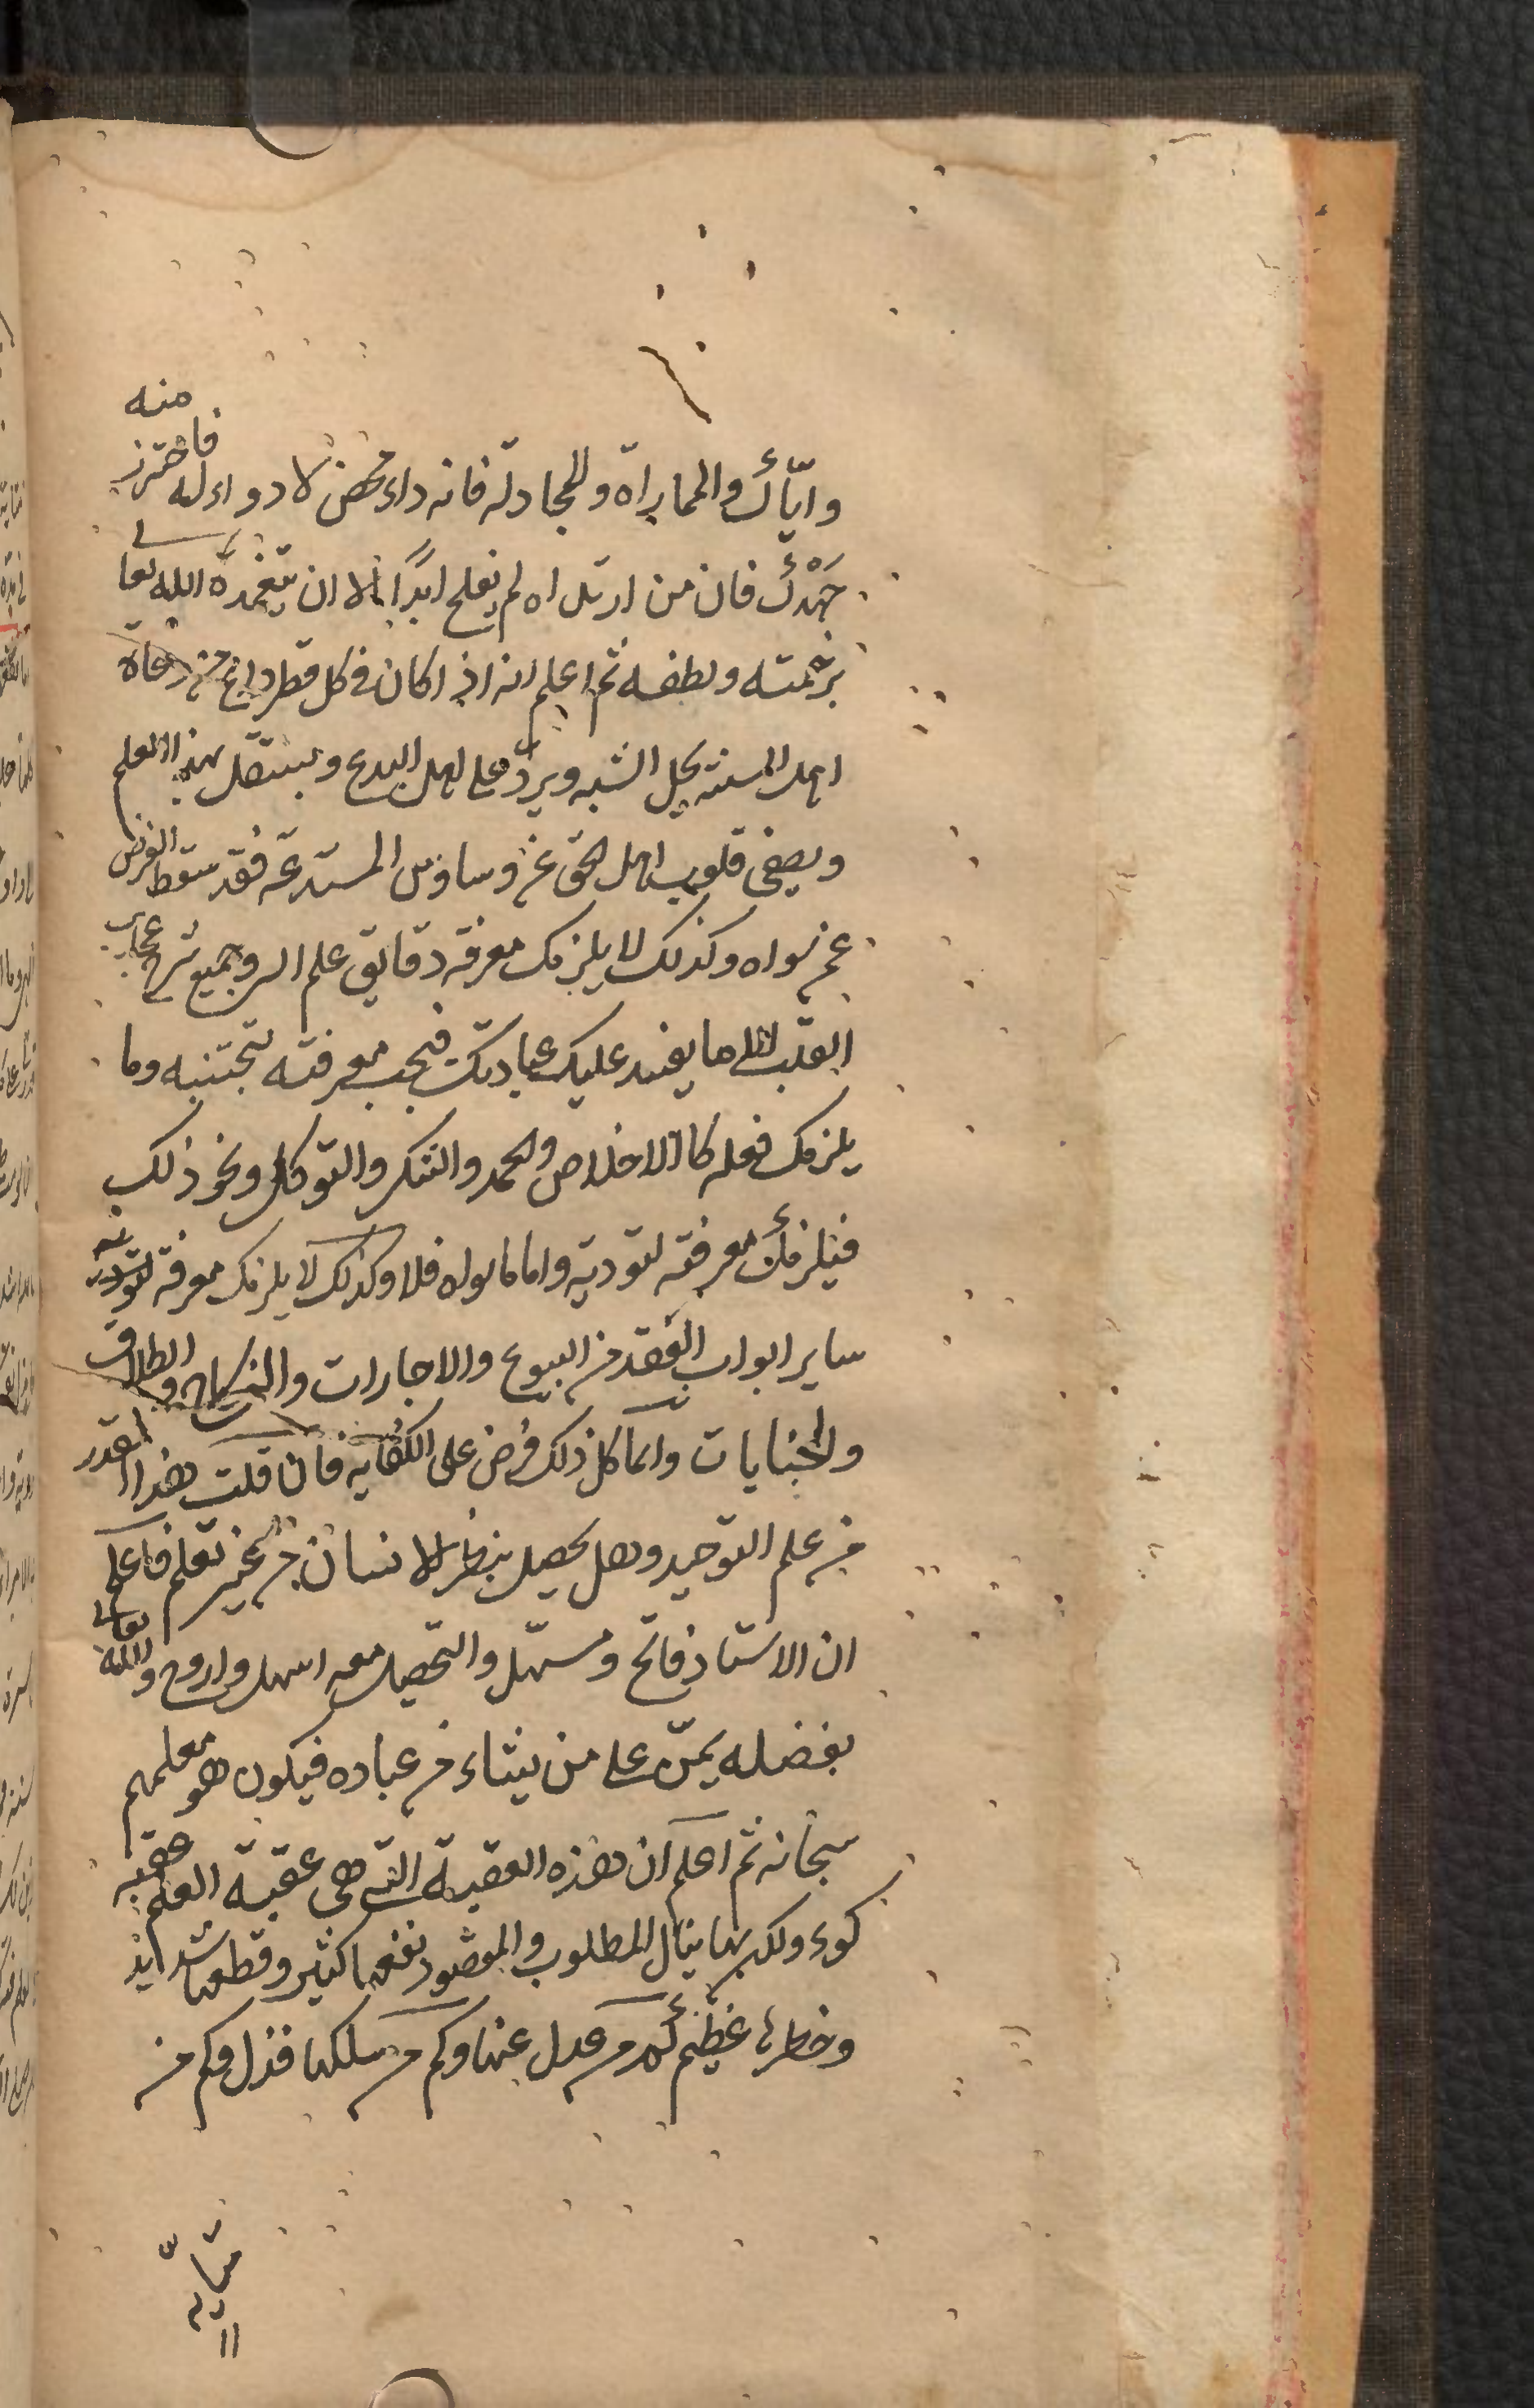 وايّاك والمماراة والمجادلة فانه داء محض لا دواء له فاحترز منه
جَهْدك فان من ارتداه لم يفلح ابدًا الا ان يتغمده الله تعالى
برحمته ولطفه ثم اعلم انه اذا كان فى كل قطر داع من دعاة
اهل السنة يحل الشبه ويردّ على اهل البدع ويستقل بهذا العلم
ويصفى قلوب اهل الحق عن وساوس المبتدعة فقد سقط الفرض
عن سواه وكذلك لا يلزمك معرفة دقايق علم السر وجميع شرح عجايب
القلب الا ما يفسد عليك عبادتك فيجب معرفته لتجتنبه وما
يلزمك فعله كالاخلاص والحمد والشكر والتوكل ونحو ذلك
فيلزمك معرفته لتوديه واما ما سواه فلا وكذلك لا يلزمك معرفة
ساير ابواب الفقه من البيوع والاجارات والنكاح والطلاق
والجنايات وانما كل ذلك فرض على الكفايه فان قلت هذا القدر
من علم التوحيد وهل يحصل بنظر الانسان من غير تعلم فاعلم
ان الاستاذ فاتح ومسهّل والتحصيل معه اسهل واروح والله تعالى
بفضله يمنّ على من يشاء من عباده فيكون هو معلمهم
سبحانه ثم اعلم ان هذه العقبة التى هى عقبة العلم عقبه
كوء ولكن بها ينال المطلوب والمقصود نفعها كثير وقطعها شديد
وخطرها عظيم كم من عدل عنها وكم من سلكها فزل وكم من